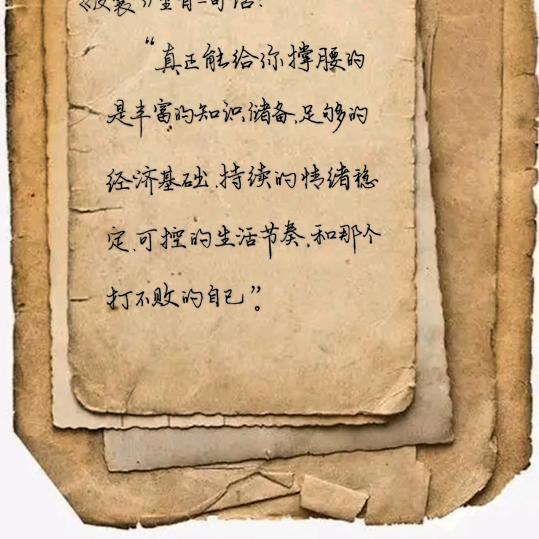 《反袭》里有一句话:
“真正能给你撑腰的
是丰富的知识储备、足够的
经济基础、持续的情绪稳
定、可控的生活节奏、和那个
打不败的自己”。